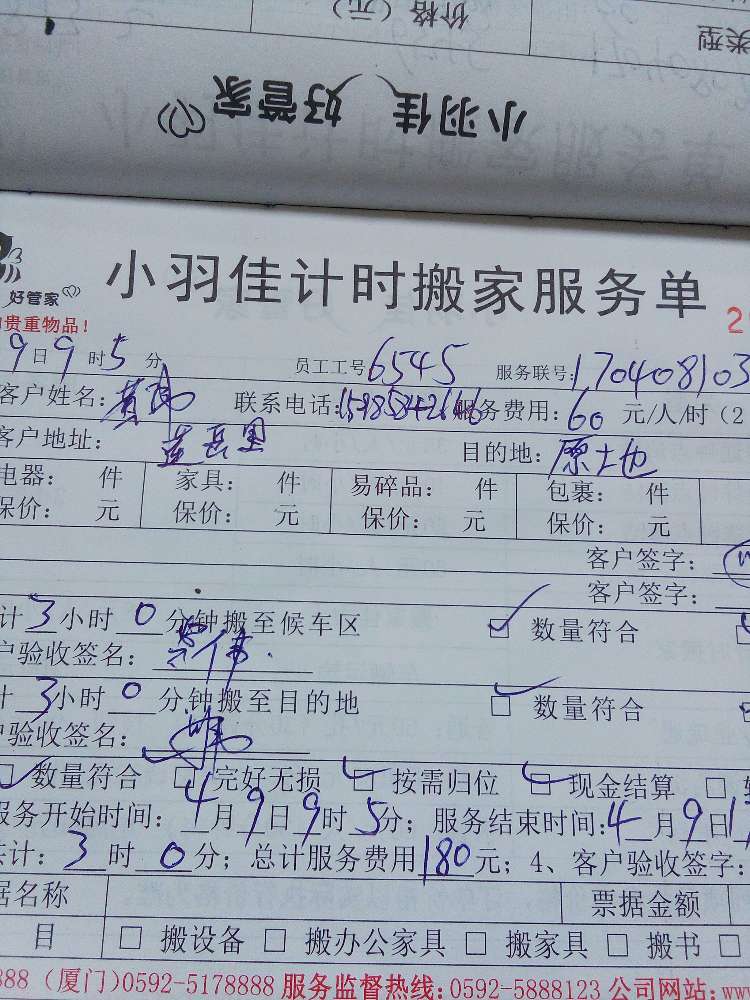 类型
价格(元)
小羽佳 好管家
好管家
小羽佳计时搬家服务单
贵重物品!
9日9时5分 员工工号:6545 服务联号:170408103
客户姓名: 联系电话: 服务费用:60元/人/时(2
客户地址: 目的地:原土地
电器: 件 家具: 件 易碎品: 件 包裹: 件
保价: 元 保价: 元 保价: 元 保价: 元
客户签字:
客户签字:
计3小时0分钟搬至候车区 数量符合
户验收签名:
计3小时0分钟搬至目的地 数量符合
户验收签名:
数量符合 完好无损 按需归位 现金结算
服务开始时间:4月9日9时5分;服务结束时间:4月9日1
共计:3时0分;总计服务费用180元;4、客户验收签字:
据名称 票据金额
目 搬设备 搬办公家具 搬家具 搬书
888(厦门)0592-5178888 服务监督热线:0592-5888123 公司网站:ww